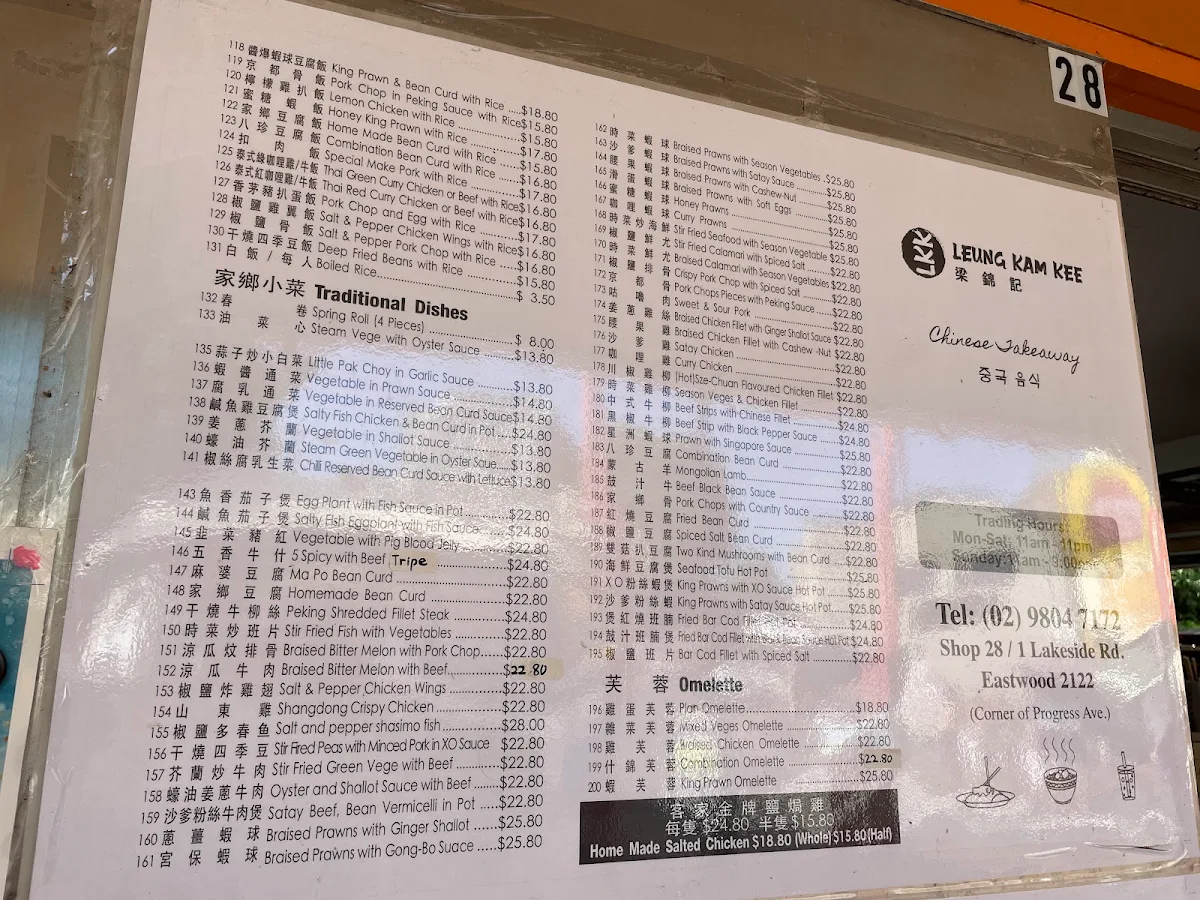 118 醬爆蝦球豆腐飯 King Prawn & Bean Curd with Rice ....$18.80
119 京都骨飯 Pork Chop in Peking Sauce with Rice$15.80
120 檸檬雞扒飯 Lemon Chicken with Rice..................$15.80
121 蜜糖蝦飯 Honey King Prawn with Rice..............$17.80
122 家鄉豆腐飯 Home Made Bean Curd with Rice........$15.80
123 八珍豆腐飯 Combination Bean Curd with Rice ......$16.80
124 扣肉飯 Special Make Pork with Rice ..............$17.80
125 泰式綠咖哩雞/牛飯 Thai Green Curry Chicken or Beef with Rice$16.80
126 泰式紅咖哩雞/牛飯 Thai Red Curry Chicken or Beef with Rice$16.80
127 香茅豬扒蛋飯 Pork Chop and Egg with Rice...........$17.80
128 椒鹽雞翼飯 Salt & Pepper Chicken Wings with Rice$16.80
129 椒鹽骨飯 Salt & Pepper Pork Chop with Rice.....$16.80
130 干燒四季豆飯 Deep Fried Beans with Rice..............$15.80
131 白飯/每人 Boiled Rice................................$ 3.50
家鄉小菜 Traditional Dishes
132 春卷 Spring Roll (4 Pieces) ......................$ 8.00
133 油菜心 Steam Vege with Oyster Sauce ..........$13.80
135 蒜子炒小白菜 Little Pak Choy in Garlic Sauce ..........$13.80
136 蝦醬通菜 Vegetable in Prawn Sauce ...............$14.80
137 腐乳通菜 Vegetable in Reserved Bean Curd Sauce$14.80
138 鹹魚雞豆腐煲 Salty Fish Chicken & Bean Curd in Pot ..$24.80
139 姜蔥芥蘭 Vegetable in Shallot Sauce .............$13.80
140 蠔油芥蘭 Steam Green Vegetable in Oyster Saue...$13.80
141 椒絲腐乳生菜 Chili Reserved Bean Curd Sauce with Lettuce$13.80
143 魚香茄子煲 Egg Plant with Fish Sauce in Pot ........$22.80
144 鹹魚茄子煲 Salty Fish Eggplant with Fish Sauce......$24.80
145 韭菜豬紅 Vegetable with Pig Blood Jelly ..........$22.80
146 五香牛什 5 Spicy with Beef Tripe ..........$24.80
147 麻婆豆腐 Ma Po Bean Curd ........................$22.80
148 家鄉豆腐 Homemade Bean Curd .................$22.80
149 干燒牛柳絲 Peking Shredded Fillet Steak ............$24.80
150 時菜炒班片 Stir Fried Fish with Vegetables ...........$22.80
151 涼瓜炆排骨 Braised Bitter Melon with Pork Chop.....$22.80
152 涼瓜牛肉 Braised Bitter Melon with Beef...........$22.80
153 椒鹽炸雞翅 Salt & Pepper Chicken Wings ..........$22.80
154 山東雞 Shangdong Crispy Chicken .............$22.80
155 椒鹽多春魚 Salt and pepper shasimo fish............$28.00
156 干燒四季豆 Stir Fired Peas with Minced Pork in XO Sauce $22.80
157 芥蘭炒牛肉 Stir Fried Green Vege with Beef .........$22.80
158 蠔油姜蔥牛肉 Oyster and Shallot Sauce with Beef .....$22.80
159 沙爹粉絲牛肉煲 Satay Beef, Bean Vermicelli in Pot .....$22.80
160 蔥薑蝦球 Braised Prawns with Ginger Shallot .....$25.80
161 宮保蝦球 Braised Prawns with Gong-Bo Suace .....$25.80
162 時菜蝦球 Braised Prawns with Season Vegetables .$25.80
163 沙爹蝦球 Braised Prawns with Satay Sauce .......$25.80
164 腰果蝦球 Braised Prawns with Cashew-Nut .......$25.80
165 滑蛋蝦球 Braised Prawns with Soft Eggs ..........$25.80
166 蜜糖蝦球 Honey Prawns ..........................$25.80
167 咖喱蝦球 Curry Prawns ...........................$25.80
168 時菜炒海鮮 Stir Fried Seafood with Season Vegetable $25.80
169 椒鹽鮮尤 Stir Fried Calamari with Spiced Salt .....$22.80
170 時菜鮮尤 Braised Calamari with Season Vegetables $22.80
171 椒鹽排骨 Crispy Pork Chop with Spiced Salt ......$22.80
172 京都骨 Pork Chops Pieces with Peking Sauce .....$22.80
173 咕嚕肉 Sweet & Sour Pork .....................$22.80
174 姜蔥雞絲 Braised Chicken Fillet with Ginger Shallot Sauce $22.80
175 腰果雞 Braised Chicken Fillet with Cashew -Nut $22.80
176 沙爹雞 Satay Chicken ..........................$22.80
177 咖喱雞 Curry Chicken ..........................$22.80
178 川椒雞柳 (Hot)Sze-Chuan Flavoured Chicken Fillet $22.80
179 時菜雞柳 Season Veges & Chicken Fillet ..........$22.80
180 中式牛柳 Beef Strips with Chinese Fillet ...........$24.80
181 黑椒牛柳 Beef Strip with Black Pepper Sauce .....$24.80
182 星洲蝦球 Prawn with Singapore Sauce ..........$25.80
183 八珍豆腐 Combination Bean Curd ...............$22.80
184 蒙古羊 Mongolian Lamb........................$22.80
185 豉汁牛 Beef Black Bean Sauce .................$22.80
186 家鄉骨 Pork Chops with Country Sauce .......$22.80
187 紅燒豆腐 Fried Bean Curd ......................$22.80
188 椒鹽豆腐 Spiced Salt Bean Curd .................$22.80
189 雙菇扒豆腐 Two Kind Mushrooms with Bean Curd ...$22.80
190 海鮮豆腐煲 Seafood Tofu Hot Pot ..................$25.80
191 XO粉絲蝦煲 King Prawns with XO Sauce Hot Pot .....$25.80
192 沙爹粉絲蝦 King Prawns with Satay Sauce Hot Pot...$25.80
193 煲紅燒班腩 Fried Bar Cod Fillet Hot Pot ............$24.80
194 鼓汁班腩煲 Fried Bar Cod Fillet with Black Bean Sauce Hot Pot $24.80
195 椒鹽班片 Bar Cod Fillet with Spiced Salt ..........$22.80
芙蓉 Omelette
196 雞蛋芙蓉 Plan Omelette.........................$18.80
197 雜菜芙蓉 Mixed Veges Omelette ..............$22.80
198 雞芙蓉 Braised Chicken Omelette ...........$22.80
199 什錦芙蓉 Combination Omelette ..............$22.80
200 蝦芙蓉 King Prawn Omelette ................$25.80
客家金牌鹽焗雞
每隻 $24.80 半隻 $15.80
Home Made Salted Chicken $18.80 (Whole) $15.80(Half)
28
LKK LEUNG KAM KEE
梁錦記
Chinese Takeaway
중국 음식
Trading Hours:
Mon-Sat: 11am - 11pm
Sunday: 11am - 9:00pm
Tel: (02) 9804 7172
Shop 28 / 1 Lakeside Rd.
Eastwood 2122
(Corner of Progress Ave.)